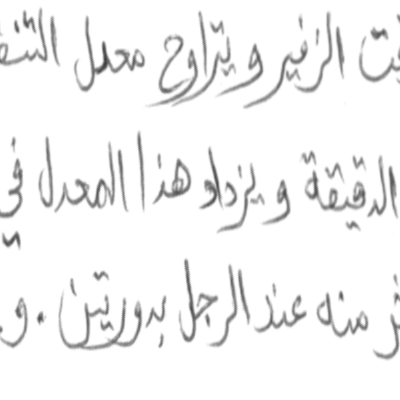 الزفير و يتراوح معدل
الدقيقة و يزداد هذا المعدل في
منه عند الرجل بدورتين . و